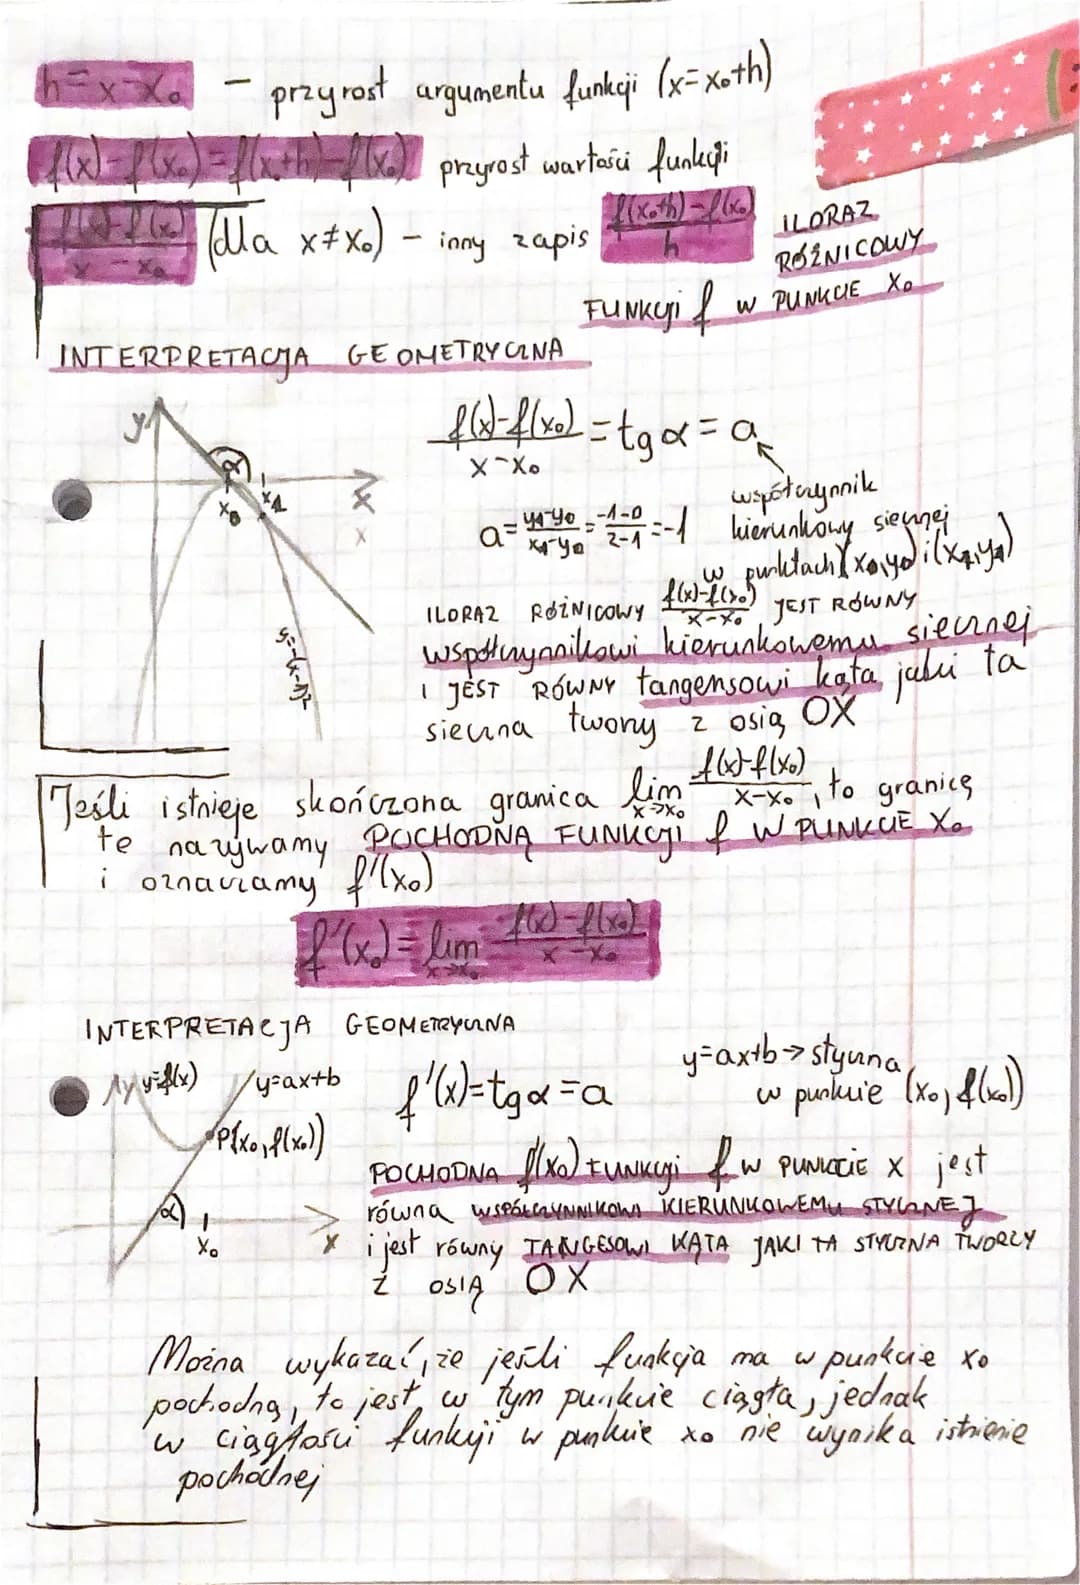 h=x-x₀ - przyrost argumentu funkcji (x=x₀+h)
f(x)-f(x₀)=f(x₀+h)-f(x₀) przyrost wartości funkcji
f(x)-f(x₀)/x-x₀ (dla x≠x₀) - inny zapis f(x₀+h)-f(x₀)/h ILORAZ
RÓŻNICOWY
FUNKCJI f w PUNKCIE x₀
INTERPRETACJA GEOMETRYCZNA
y
α
x₀ x₁ x
x
y=-(x-1)²
f(x)-f(x₀)/x-x₀ = tg α = a
a= y₁-y₀/x₁-y₀ = -1-0/2-1 = -1
współczynnik
kierunkowy siecznej
w punktach (x₀,y₀) i (x₁,y₁)
ILORAZ RÓŻNICOWY f(x)-f(x₀)/x-x₀ JEST RÓWNY
współczynnikowi kierunkowemu siecznej
I JEST RÓWNY tangensowi kąta jaki ta
sieczna tworzy z osią OX
Jeśli istnieje skończona granica lim x→x₀ f(x)-f(x₀)/x-x₀, to granicę
te nazywamy POCHODNĄ FUNKCJI f W PUNKCIE x₀
i oznaczamy f'(x₀)
f'(x₀)=lim x→x₀ f(x)-f(x₀)/x-x₀
INTERPRETACJA GEOMETRYCZNA
y y=f(x) y=ax+b
P(x₀,f(x₀))
α
x₀ x
f'(x)=tg α=a
y=ax+b → styczna
w punkcie (x₀, f(x₀))
POCHODNA f'(x₀) FUNKCJI f w PUNKCIE x jest
równa WSPÓŁCZYNNIKOWI KIERUNKOWEMU STYCZNEJ
i jest równy TANGESOWI KĄTA JAKI TA STYCZNA TWORZY
Z OSIĄ OX
Można wykazać, że jeśli funkcja ma w punkcie x₀
pochodną, to jest w tym punkcie ciągła, jednak
w ciągłości funkcji w punkcie x₀ nie wynika istnienie
pochodnej